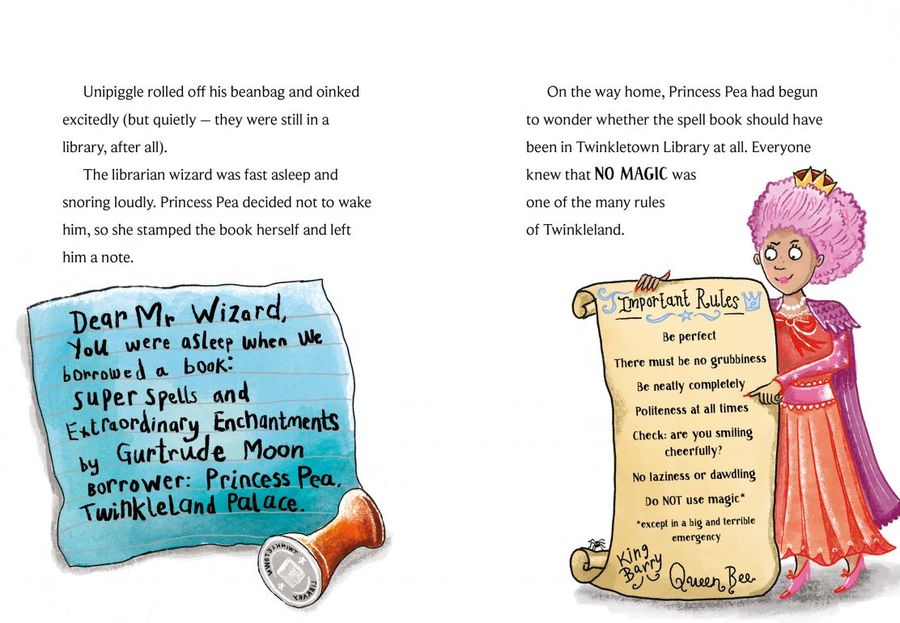 Unipiggle rolled off his beanbag and oinked
excitedly (but quietly – they were still in a
library, after all).
The librarian wizard was fast asleep and
snoring loudly. Princess Pea decided not to wake
him, so she stamped the book herself and left
him a note.
Dear Mr Wizard,
You were asleep when we
borrowed a book:
Super Spells and
Extraordinary Enchantments
by Gurtrude Moon
Borrower: Princess Pea,
Twinkleland Palace.
TWINKLETOWN
LIBRARY
On the way home, Princess Pea had begun
to wonder whether the spell book should have
been in Twinkletown Library at all. Everyone
knew that NO MAGIC was
one of the many rules
of Twinkleland.
Important Rules
Be perfect
There must be no grubbiness
Be neatly completely
Politeness at all times
Check: are you smiling
cheerfully?
No laziness or dawdling
Do NOT use magic*
*except in a big and terrible
emergency
King
Barry
Queen Bee